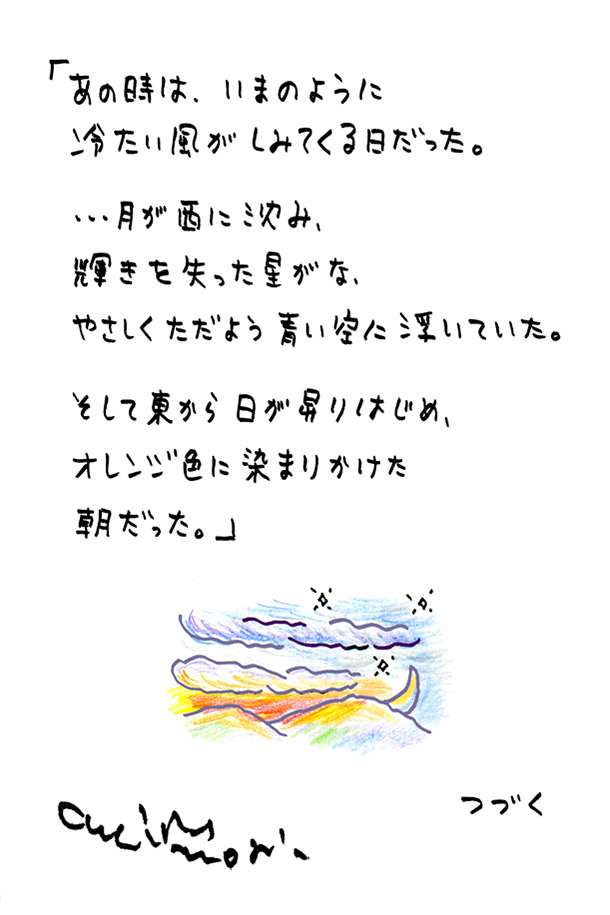 「あの時は、いまのように
冷たい風がしみてくる日だった。
…月が西に沈み、
輝きを失った星がな、
やさしくただよう青い空に浮いていた。
そして東から日が昇りはじめ、
オレンジ色に染まりかけた
朝だった。」
つづく